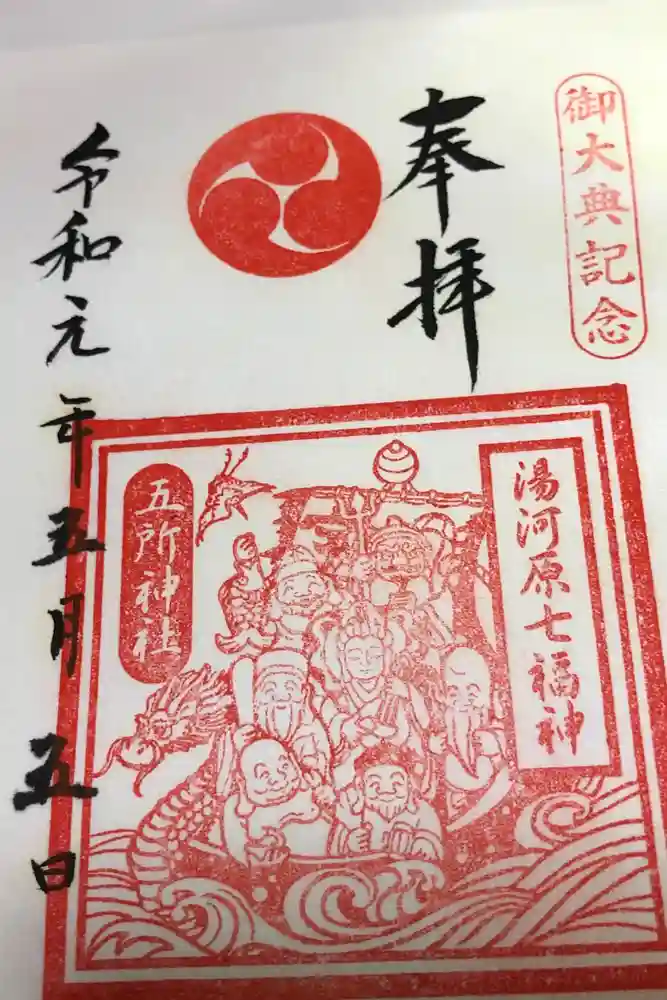 御大典記念
奉拝
令和元年五月五日
湯河原七福神
五所神社